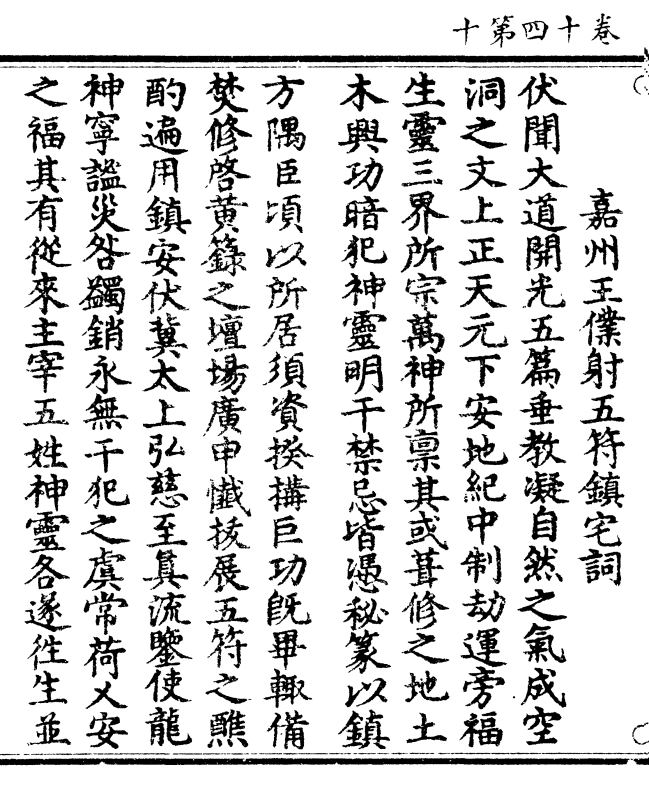 卷十四第十
嘉州王僕射五符鎮宅詞
伏聞大道開光五篇垂教凝自然之氣成空
洞之文上正天元下安地紀中制劫運旁福
生靈三界所宗萬神所禀其或葺修之地土
木興功暗犯神靈明干禁忌皆憑秘篆以鎮
方隅臣頃以所居須資揆構巨功旣畢輙備
焚修啓黄籙之壇場廣申懴拔展五符之醮
酌遍用鎮安伏冀太上弘慈至眞流鑒使龍
神寧謐災咎蠲銷永無干犯之虞常荷乂安
之福其有從來主宰五姓神靈各遂徃生並